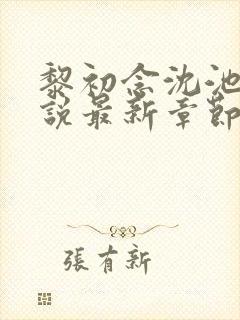 黎初念沈池
說最新章節
張有新